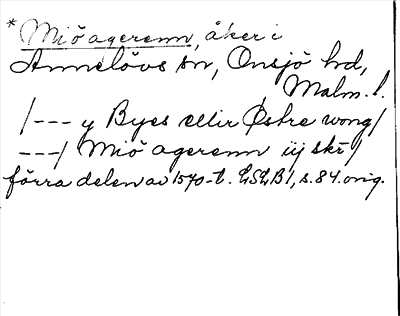 * Miöagerenn, åker i
Annelövs sn, Onsjö hd,
Malm. l.
/--- y Byes ellir Østre wong/
---/ Miö agerenn iij skr/
förra delen av 1570-t. LSLB 1, s. 84. orig.